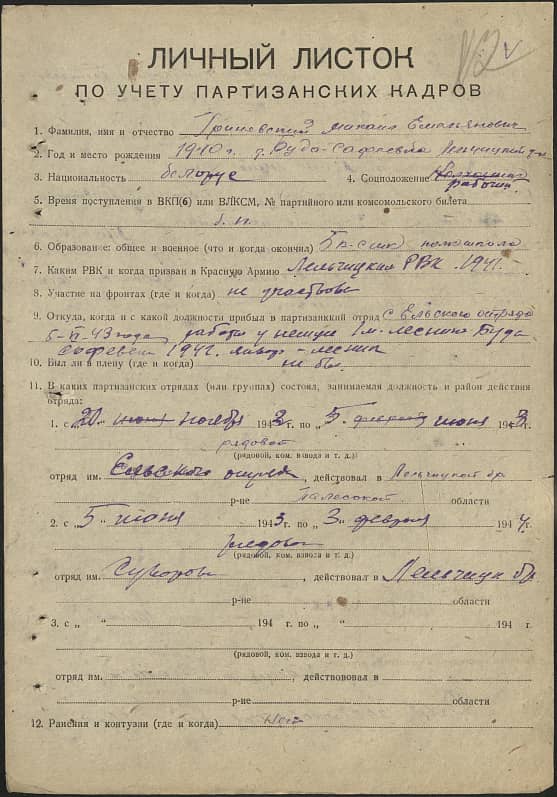 ЛИЧНЫЙ ЛИСТОК
ПО УЧЕТУ ПАРТИЗАНСКИХ КАДРОВ
1. Фамилия, имя и отчество Михаил Емельянович
2. Год и место рождения 1910 г. д. Руда-Софиевка Лельчицкий
3. Национальность белорус 4. Соцположение
рабочий
5. Время поступления в ВКП(б) или ВЛКСМ, № партийного или комсомольского билета
б. п.
6. Образование: общее и военное (что и когда окончил)
7. Каким РВК и когда призван в Красную Армию Лельчицким РВК 1941.
8. Участие на фронтах (где и когда) не участвовал
9. Откуда, когда и с какой должности прибыл в партизанкий отряд с Ельского отряда
5-VI-43 года работал у немцев
1942
10. Был ли в плену (где и когда) не был
11. В каких партизанских отрядах (или группах) состоял, занимаемая должность и район действия
отряда:
1. с „20“ июня ноября 1942 г. по „5“ июня 1943 г.
рядовой
(рядовой, ком. взвода и т. д.)
отряд им. Ельского отряда, действовал в Лельчицкой бр
р-не Полесской области
2. с „5“ июня 1943 г. по „3“ февраля 1944 г.
рядовой
(рядовой, ком. взвода и т. д.)
отряд им. Суворова, действовал в Лельчицк бр
р-не области
3. с „ “ 194 г. по „ “ 194 г.
(рядовой, ком. взвода и т. д.)
отряд им. , действововал в
р-не области
12. Ранения и контузии (где и когда) нет